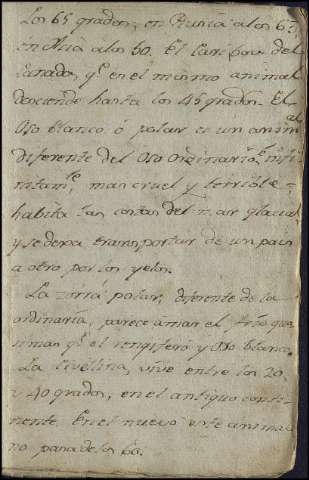 Los 65 grados, en Rusia a los 63,
en Asia a los 50. El Caribou del
Canada, q.e en el mismo animal
desciende hasta los 45 grados. El
Oso blanco ó polar es un anim.al
diferente del Oso Ordinario é infi-
nitam.te mas cruel y terrible =
habita las costas del mar glacial
y se dexa transportar de un pais
a otro por los yelos.
La zorra polar, diferente de la
ordinaria, parece amar el frio aun
mas q.e el rengifero y Oso blanco.
La Civelina, vive entre los 20,
y 40 grados, en el antiguo conti-
nente. En el nuevo este anima
no pasa de los 60.